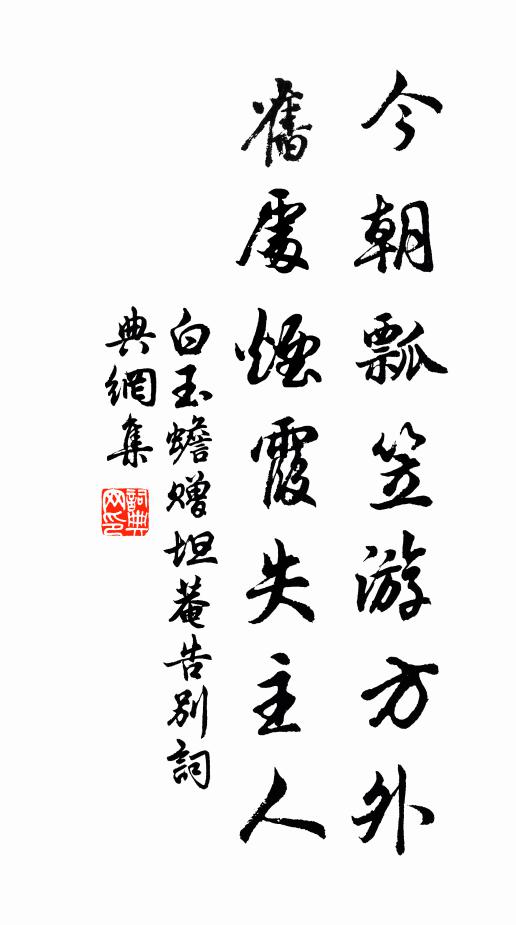 今朝瓢笠游方外
舊處煙霞失主人
白玉蟾贈坦菴告別詞
典網集
詞典網印